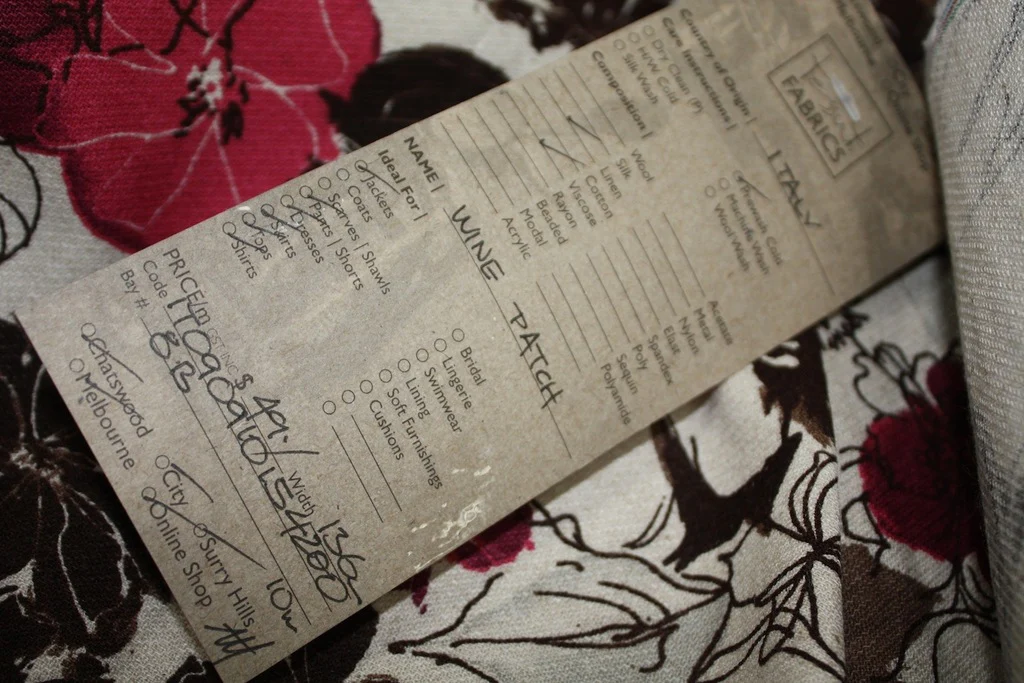 FABRICS
Country of Origin | ITALY
Care Instructions |
Dry Clean (P)
H/W Cold
Silk Wash
Handwash Cold
Machine Wash
Wool Wash
Composition |
Wool
Silk
Linen
Cotton
Viscose
Rayon
Beaded
Modal
Acrylic
Acetate
Metal
Nylon
Elast
Spandex
Poly
Sequin
Polyamide
NAME | WINE PATCH
Ideal For |
Jackets
Coats
Scarves | Shawls
Pants | Shorts
Dresses
Skirts
Tops
Shirts
Bridal
Lingerie
Swimwear
Lining
Soft Furnishings
Cushions
PRICE/m GST INC $ 49.- Width 136
Code
Bay # 8B
Chatswood
Melbourne
City
Surry Hills
Online Shop
10m